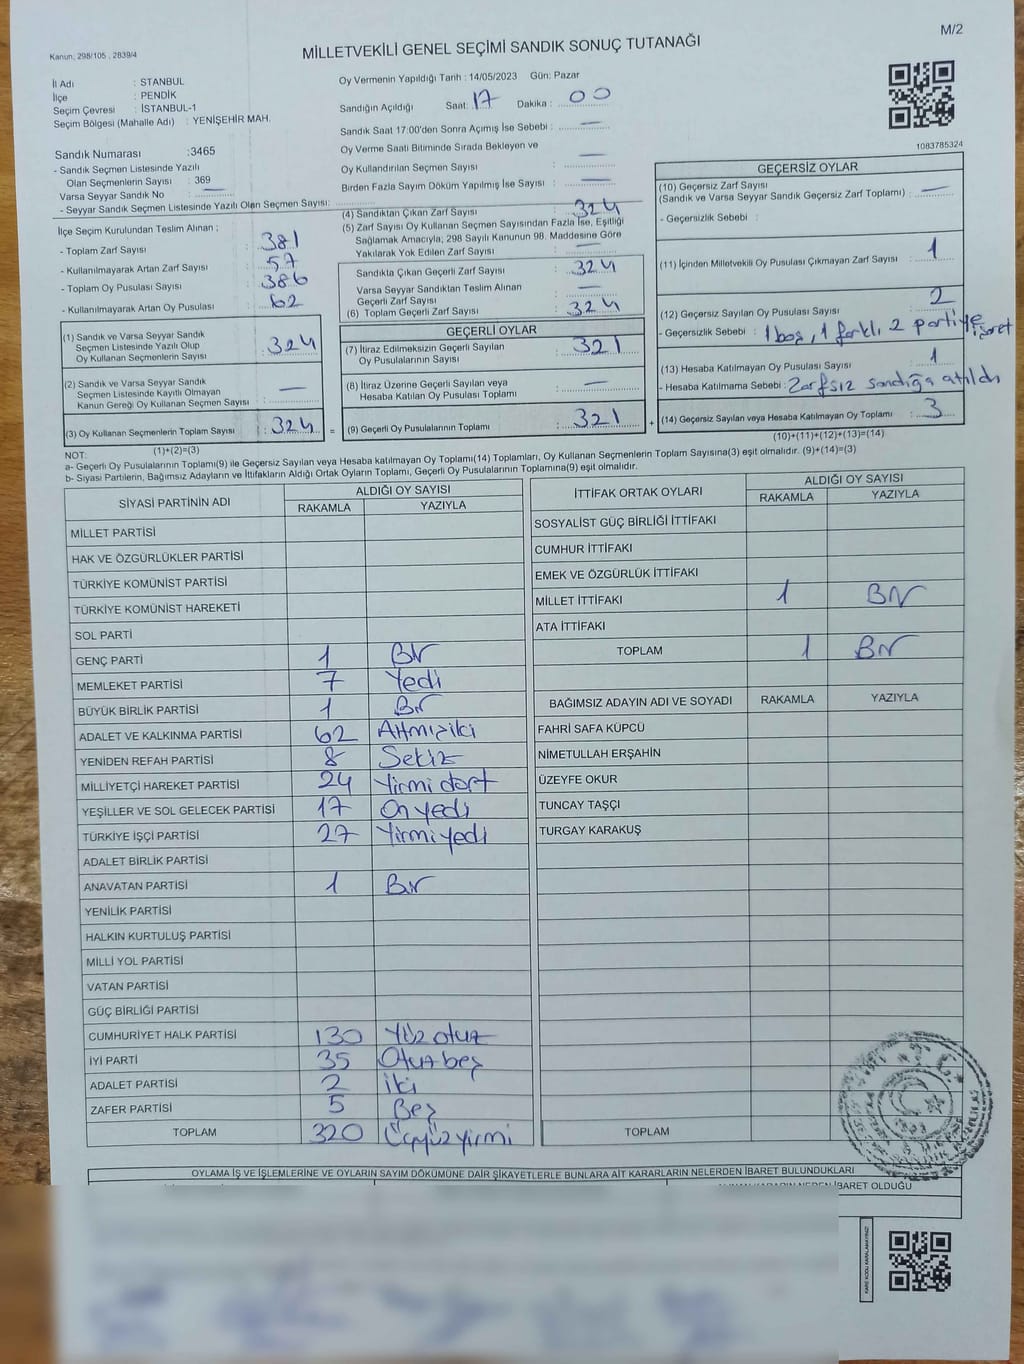 M/2
Kanun: 298/105 , 2839/4
MİLLETVEKİLİ GENEL SEÇİMİ SANDIK SONUÇ TUTANAĞI
İl Adı : STANBUL
İlçe : PENDİK
Seçim Çevresi : İSTANBUL-1
Seçim Bölgesi (Mahalle Adı) : YENİŞEHİR MAH.
Oy Vermenin Yapıldığı Tarih : 14/05/2023 Gün: Pazar
Sandığın Açıldığı Saat: 17 Dakika : 00
Sandık Saat 17:00'den Sonra Açımış İse Sebebi : —
Oy Verme Saati Bitiminde Sırada Bekleyen ve
Oy Kullandırılan Seçmen Sayısı : —
Birden Fazla Sayım Döküm Yapılmış İse Sayısı : —
1083785324
Sandık Numarası :3465
- Sandık Seçmen Listesinde Yazılı
Olan Seçmenlerin Sayısı : 369
Varsa Seyyar Sandık No : —
- Seyyar Sandık Seçmen Listesinde Yazılı Olan Seçmen Sayısı:
İlçe Seçim Kurulundan Teslim Alınan ;
- Toplam Zarf Sayısı : 381
- Kullanılmayarak Artan Zarf Sayısı : 57
- Toplam Oy Pusulası Sayısı : 386
- Kullanılmayarak Artan Oy Pusulası : 62
(1) Sandık ve Varsa Seyyar Sandık
Seçmen Listesinde Yazılı Olup
Oy Kullanan Seçmenlerin Sayısı : 324
(2) Sandık ve Varsa Seyyar Sandık
Seçmen Listesinde Kayıtlı Olmayan
Kanun Gereği Oy Kullanan Seçmen Sayısı : —
(3) Oy Kullanan Seçmenlerin Toplam Sayısı : 324 =
(1)+(2)=(3)
(4) Sandıktan Çıkan Zarf Sayısı : 324
(5) Zarf Sayısı Oy Kullanan Seçmen Sayısından Fazla İse, Eşitliği
Sağlamak Amacıyla, 298 Sayılı Kanunun 98. Maddesine Göre
Yakılarak Yok Edilen Zarf Sayısı : —
Sandıkta Çıkan Geçerli Zarf Sayısı : 324
Varsa Seyyar Sandıktan Teslim Alınan
Geçerli Zarf Sayısı : —
(6) Toplam Geçerli Zarf Sayısı : 324
GEÇERLİ OYLAR
(7) İtiraz Edilmeksizin Geçerli Sayılan
Oy Pusulalarının Sayısı : 321
(8) İtiraz Üzerine Geçerli Sayılan veya
Hesaba Katılan Oy Pusulası Toplamı : —
(9) Geçerli Oy Pusulalarının Toplamı : 321 +
GEÇERSİZ OYLAR
(10) Geçersiz Zarf Sayısı
(Sandık ve Varsa Seyyar Sandık Geçersiz Zarf Toplamı) : —
- Geçersizlik Sebebi :
(11) İçinden Milletvekili Oy Pusulası Çıkmayan Zarf Sayısı : 1
(12) Geçersiz Sayılan Oy Pusulası Sayısı : 2
- Geçersizlik Sebebi : 1 boş, 1 farklı 2 partiye işaret
(13) Hesaba Katılmayan Oy Pusulası Sayısı : 1
- Hesaba Katılmama Sebebi : Zarfsız sandığa atıldı
(14) Geçersiz Sayılan veya Hesaba Katılmayan Oy Toplamı : 3
(10)+(11)+(12)+(13)=(14)
NOT:
a- Geçerli Oy Pusulalarının Toplamı(9) ile Geçersiz Sayılan veya Hesaba katılmayan Oy Toplamı(14) Toplamları, Oy Kullanan Seçmenlerin Toplam Sayısına(3) eşit olmalıdır. (9)+(14)=(3)
b- Siyasi Partilerin, Bağımsız Adayların ve İttifakların Aldığı Ortak Oyların Toplamı, Geçerli Oy Pusulalarının Toplamına(9) eşit olmalıdır.
SİYASİ PARTİNİN ADI ALDIĞI OY SAYISI
RAKAMLA YAZIYLA
MİLLET PARTİSİ
HAK VE ÖZGÜRLÜKLER PARTİSİ
TÜRKİYE KOMÜNİST PARTİSİ
TÜRKİYE KOMÜNİST HAREKETİ
SOL PARTİ
GENÇ PARTİ 1 Bir
MEMLEKET PARTİSİ 7 Yedi
BÜYÜK BİRLİK PARTİSİ 1 Bir
ADALET VE KALKINMA PARTİSİ 62 Atmışiki
YENİDEN REFAH PARTİSİ 8 Sekiz
MİLLİYETÇİ HAREKET PARTİSİ 24 Yirmi dört
YEŞİLLER VE SOL GELECEK PARTİSİ 17 On yedi
TÜRKİYE İŞÇİ PARTİSİ 27 Yirmi yedi
ADALET BİRLİK PARTİSİ
ANAVATAN PARTİSİ 1 Bir
YENİLİK PARTİSİ
HALKIN KURTULUŞ PARTİSİ
MİLLİ YOL PARTİSİ
VATAN PARTİSİ
GÜÇ BİRLİĞİ PARTİSİ
CUMHURİYET HALK PARTİSİ 130 Yüz otuz
İYİ PARTİ 35 Otuz beş
ADALET PARTİSİ 2 İki
ZAFER PARTİSİ 5 Beş
TOPLAM 320 Üçyüz yirmi
İTTİFAK ORTAK OYLARI ALDIĞI OY SAYISI
RAKAMLA YAZIYLA
SOSYALİST GÜÇ BİRLİĞİ İTTİFAKI
CUMHUR İTTİFAKI
EMEK VE ÖZGÜRLÜK İTTİFAKI
MİLLET İTTİFAKI 1 Bir
ATA İTTİFAKI
TOPLAM 1 Bir
BAĞIMSIZ ADAYIN ADI VE SOYADI RAKAMLA YAZIYLA
FAHRİ SAFA KÜPCÜ
NİMETULLAH ERŞAHİN
ÜZEYFE OKUR
TUNCAY TAŞÇI
TURGAY KARAKUŞ
TOPLAM
OYLAMA İŞ VE İŞLEMLERİNE VE OYLARIN SAYIM DÖKÜMÜNE DAİR ŞİKAYETLERLE BUNLARA AİT KARARLARIN NELERDEN İBARET BULUNDUKLARI
İBARET OLDUĞU
KARE KODU KARALAMAYINIZ